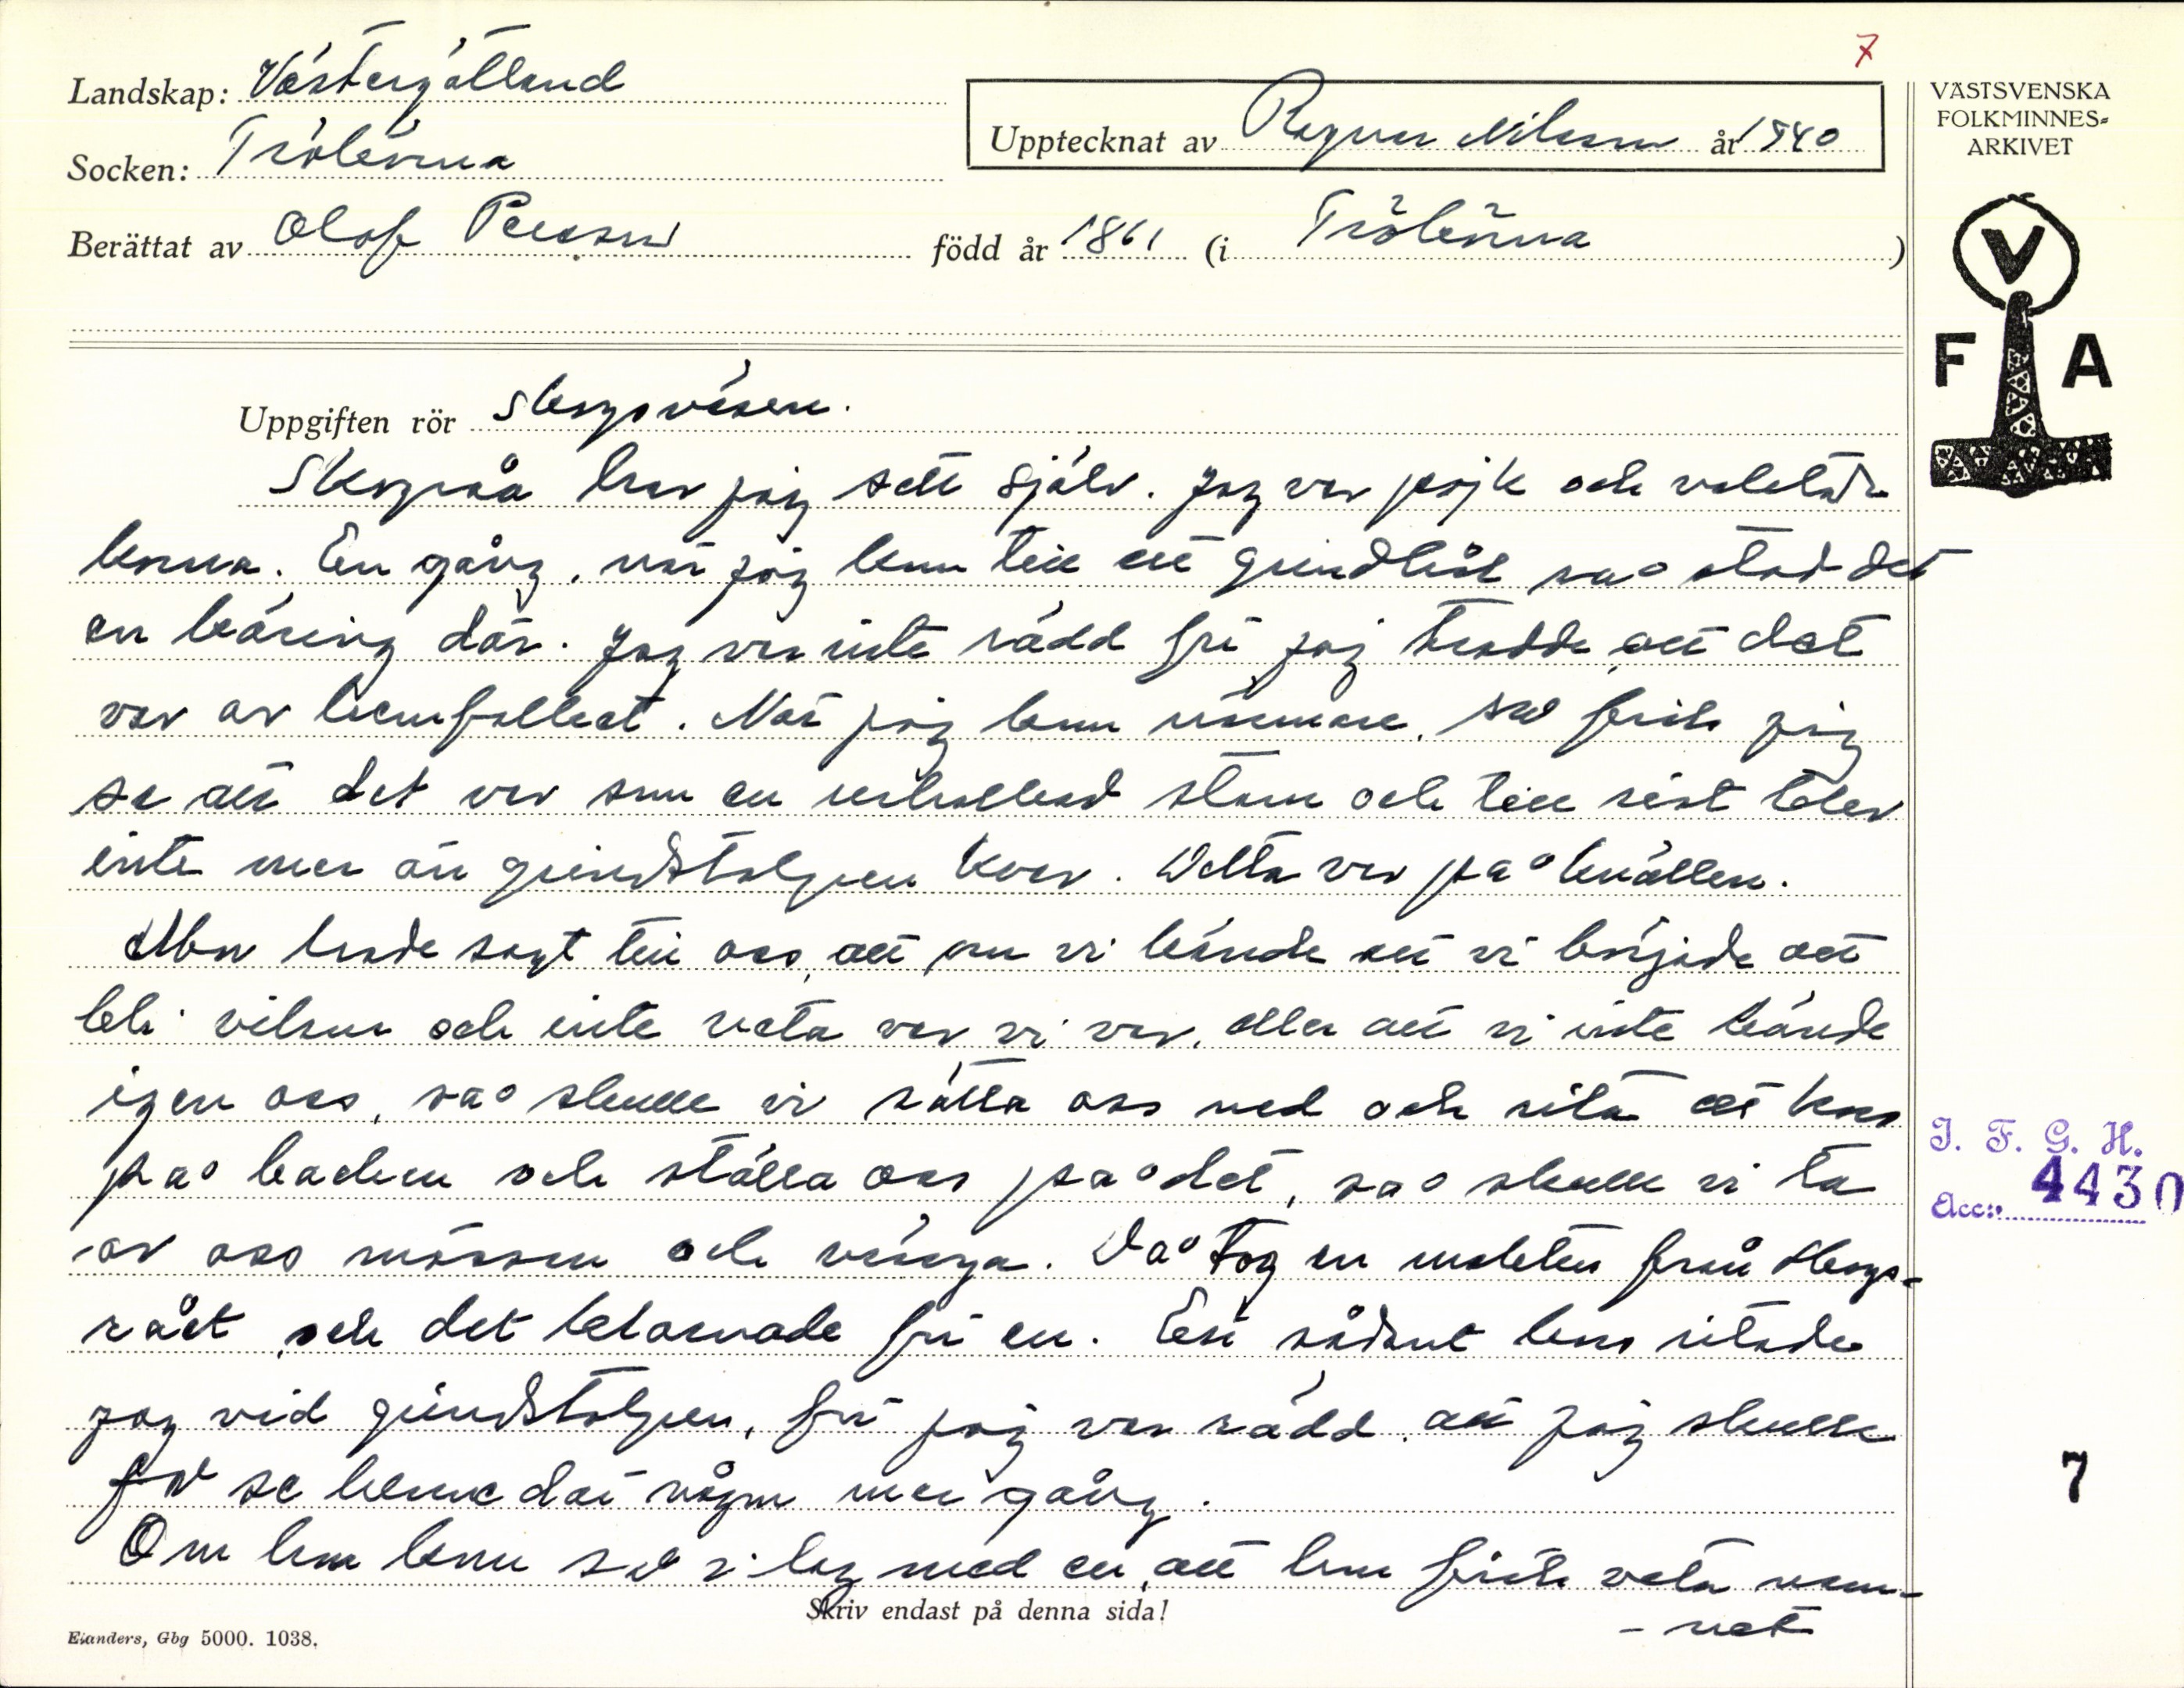 7
Landskap: Västergötland
Socken: Trökörna
Upptecknat av Ragnar Nilsson år 1940
Berättat av Olof Persson född år 1861 (i Trökörna)
VÄSTSVENSKA
FOLKMINNES=
ARKIVET
V
F A
Uppgiften rör skogsväsen.
Skogsrå har jag sett själv. Jag var pojk och vaktade
korna. En gång, när jag kom till ett grindhål så stod det
en käring där. Jag var inte rädd för jag trodde att det
var av hemfolket. När jag kom närmare, så fick jag
se att det var som en urholkad stam och till sist blev
inte mer än grindstolpen kvar. Detta var på kvällen.
Mor hade sagt till oss, att om vi kände att vi började att
bli vilsna och inte veta var vi var, eller att vi inte kände
igen oss, så skulle vi sätta oss ned och rita ett kors
på backen och ställa oss på det, så skulle vi ta
av oss mössan och vänga. Då tog en makten från skogs-
rået och det betarvade för en. Ett sådant kors ritade
jag vid grindstolpen, för jag var rädd, att jag skulle
få se henne där någon mer gång.
Om hon kom så i lag med en, att hon fick veta nam-
- net
Skriv endast på denna sida!
Elanders, Gbg 5000. 1038.
I. F. G. H.
Acc:. 4430
7